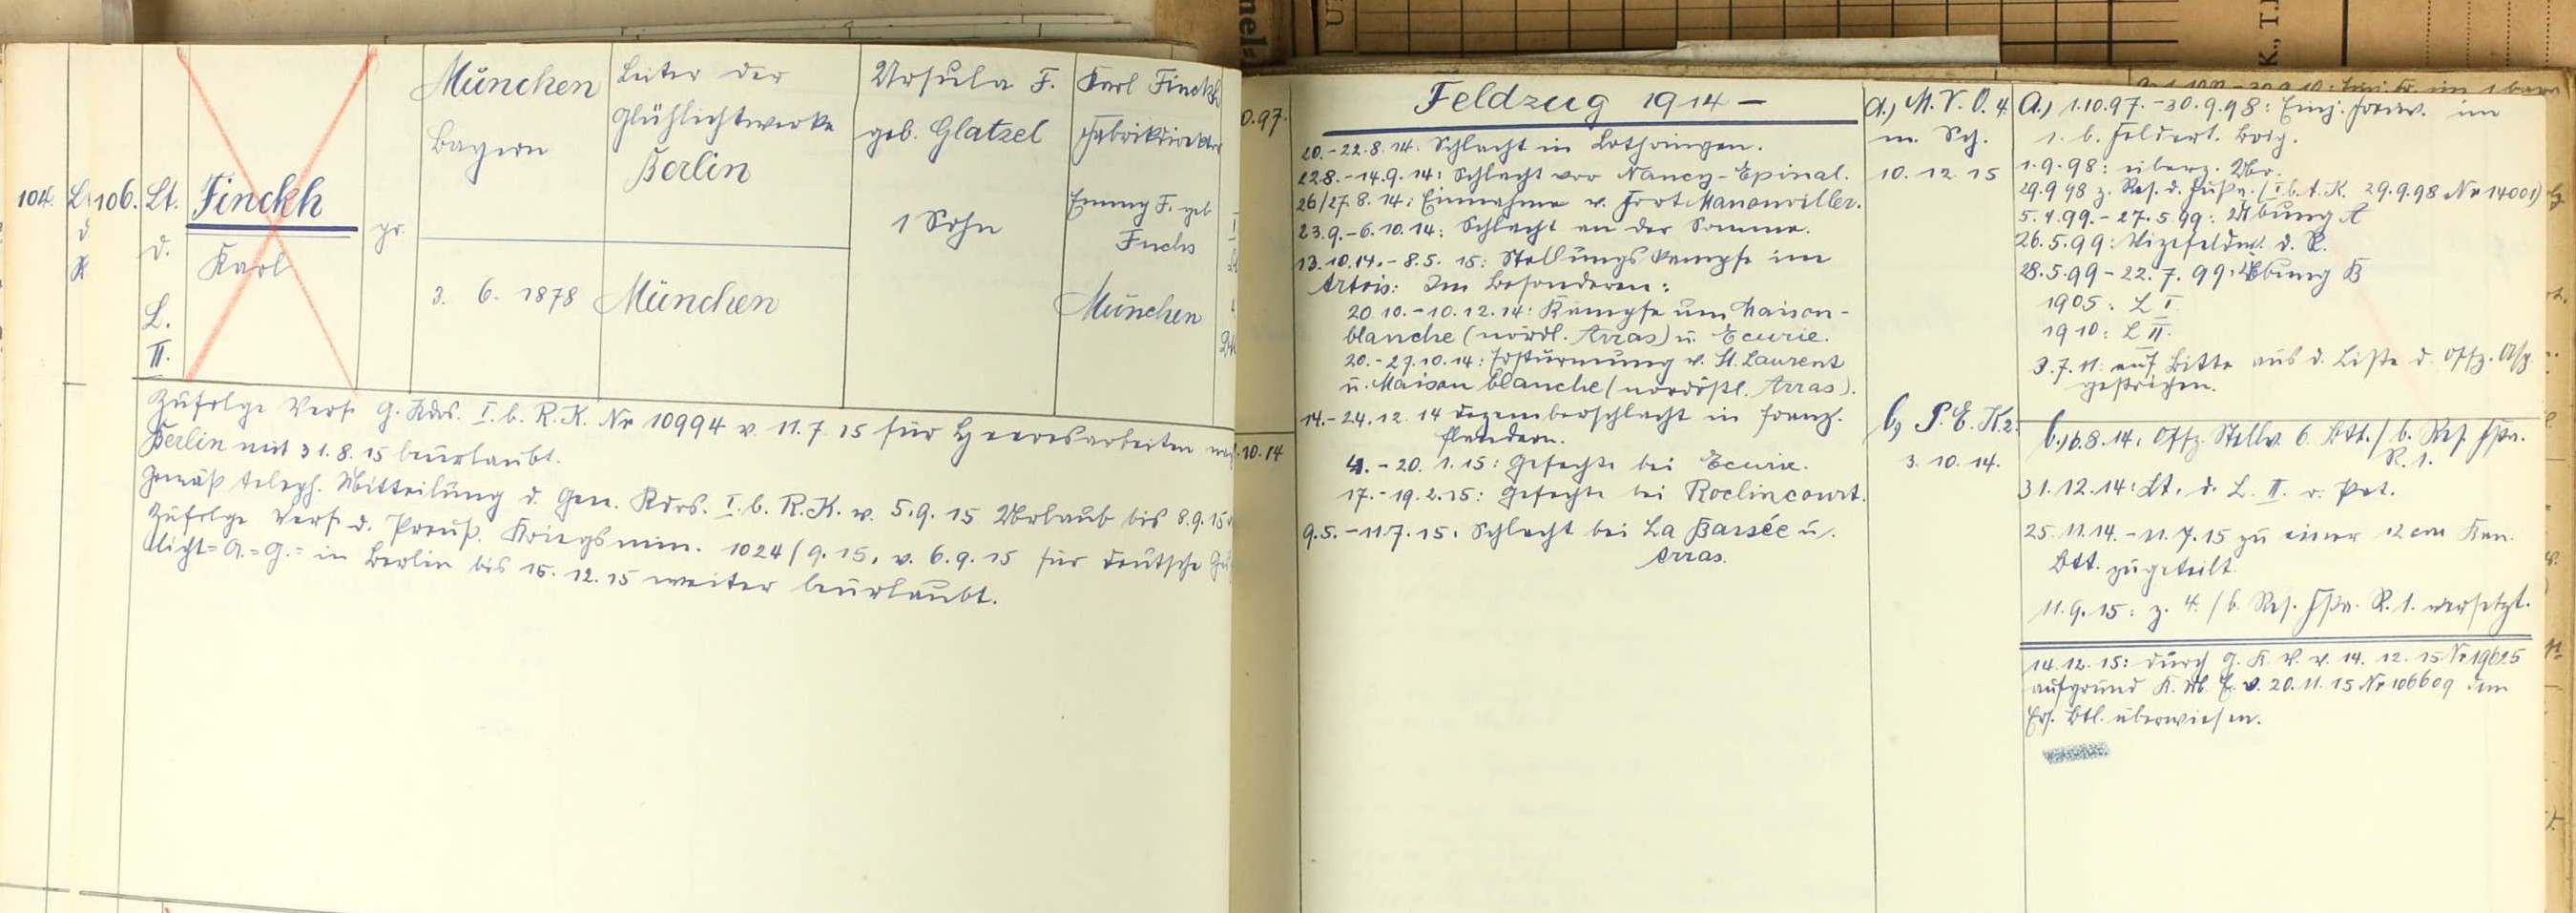 104.
106.
Lt.
d.
L.
II.
Finckh
Karl
München
Bayern
3. 6. 1878
Leiter der
Glühlichtwerke
Berlin
München
Ursula F.
geb. Glatzel
1 Sohn
Karl Finckh
Fabrikdirektor
Emmy F. geb
Fuchs
München
Zufolge Verf. G. Kdos. I. b. R. K. Nr 10994 v. 11. 7. 15 für Heeresarbeiten
Berlin mit 31. 8. 15 beurlaubt.
Gemäß teleph. Mitteilung d. Gen. Kdos. I. b. R. K. v. 5. 9. 15 Urlaub bis 8. 9. 15
Zufolge Verf. d. Preuß. Kriegsmin. 1024/9. 15. v. 6. 9. 15 für Deutsche
licht=A.=G.= in Berlin bis 15. 12. 15 weiter beurlaubt.
0.97.
10.14
Feldzug 1914 –
20.-22. 8. 14: Schlacht in Lothringen.
22.8.-14. 9. 14: Schlacht vor Nancy-Epinal.
26/27. 8. 14: Einnahme v. Fort Manonviller.
23. 9.-6. 10. 14: Schlacht an der Somme.
13. 10. 14.-8. 5. 15: Stellungskämpfe im
Artois: Im Besonderen:
20. 10.-10. 12. 14: Kämpfe um Maison-
blanche (nördl. Arras) u. Ecurie.
20.-27. 10. 14: Erstürmung v. St. Laurent
u. Maison blanche (nordöstl. Arras).
14.-24. 12. 14 Dezemberschlacht in franz.
Flandern.
4.-20. 1. 15: Gefechte bei Ecurie.
17.-19. 2. 15: Gefechte bei Roclincourt.
9. 5.-11. 7. 15: Schlacht bei La Bassée u.
Arras.
a.) M. V. O. 4.
m. Sch.
10. 12. 15
b, P. E. K. 2.
3. 10. 14.
a.) 1.10.97.-30. 9. 98: Einj. Freiw. im
1. b. Feldart. Regt.
1. 9. 98: überz. Uo.
29. 9 98 z. Res. d. Fußa. (I. b. A. K. 29. 9. 98 Nr 14001)
5. 4. 99.-27. 5. 99: Übung A
26. 5. 99: Vizefeldw. d. R.
28. 5. 99-22. 7. 99: Übung B
1905: L I.
1910: L II.
3. 7. 11: auf Bitte aus d. Liste d. Offz. Asp
gestrichen.
b.) 6. 8. 14. Offz. Stellv. 6. Btt. / b. Res. Fßa.
R. 1.
31. 12. 14: Lt. d. L. II. o. Pat.
25. 11. 14.-11. 7. 15 zu einer 12 cm Kan.
Btt. zugeteilt.
11. 9. 15: z. 4. / b. Res. Fßa. R. 1. versetzt.
14. 12. 15: durch G. K. V. v. 14. 12. 15 Nr 19625
aufgrund K. M. E. v. 20. 11. 15 Nr 106609 dem
Ers. Btl. überwiesen.